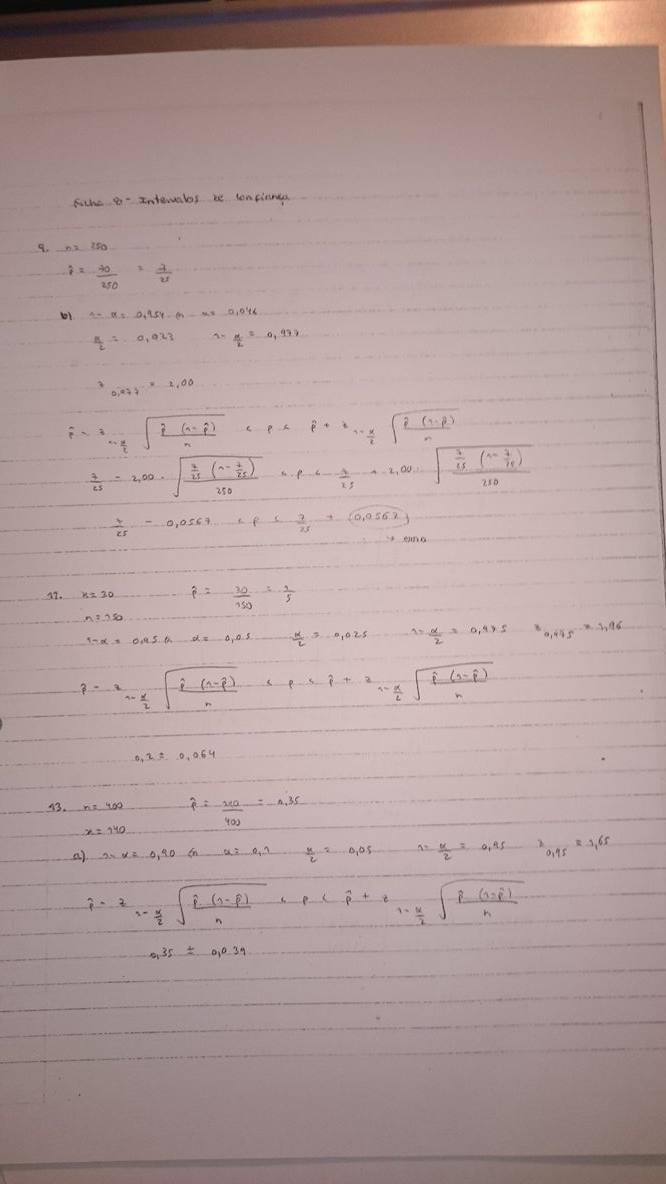 Ficha 8 - Intervalos de confiança
9. n = 250
p̂ = 70/250 = 7/25
b) 1-α = 0,954 (=) α = 0,046
α/2 = 0,023 1-α/2 = 0,977
z_0,977 = 2,00
p̂ - z_1-α/2 √(p̂ (1-p̂)/n) < p < p̂ + z_1-α/2 √(p̂ (1-p̂)/n)
7/25 - 2,00 · √(7/25 (1-7/25)/250) < p < 7/25 + 2,00 · √(7/25 (1-7/25)/250)
7/25 - 0,0567 < p < 7/25 + 0,0567
→ erro
12. x = 30 p̂ = 30/150 = 1/5
n = 150
1-α = 0,95 (=) α = 0,05 α/2 = 0,025 1-α/2 = 0,975 z_0,975 = 1,96
p̂ - z_1-α/2 √(p̂ (1-p̂)/n) < p < p̂ + z_1-α/2 √(p̂ (1-p̂)/n)
0,2 ± 0,064
13. n = 400 p̂ = 140/400 = 0,35
x = 140
a) 1-α = 0,90 (=) α = 0,1 α/2 = 0,05 1-α/2 = 0,95 z_0,95 = 1,65
p̂ - z_1-α/2 √(p̂ (1-p̂)/n) < p < p̂ + z_1-α/2 √(p̂ (1-p̂)/n)
0,35 ± 0,039